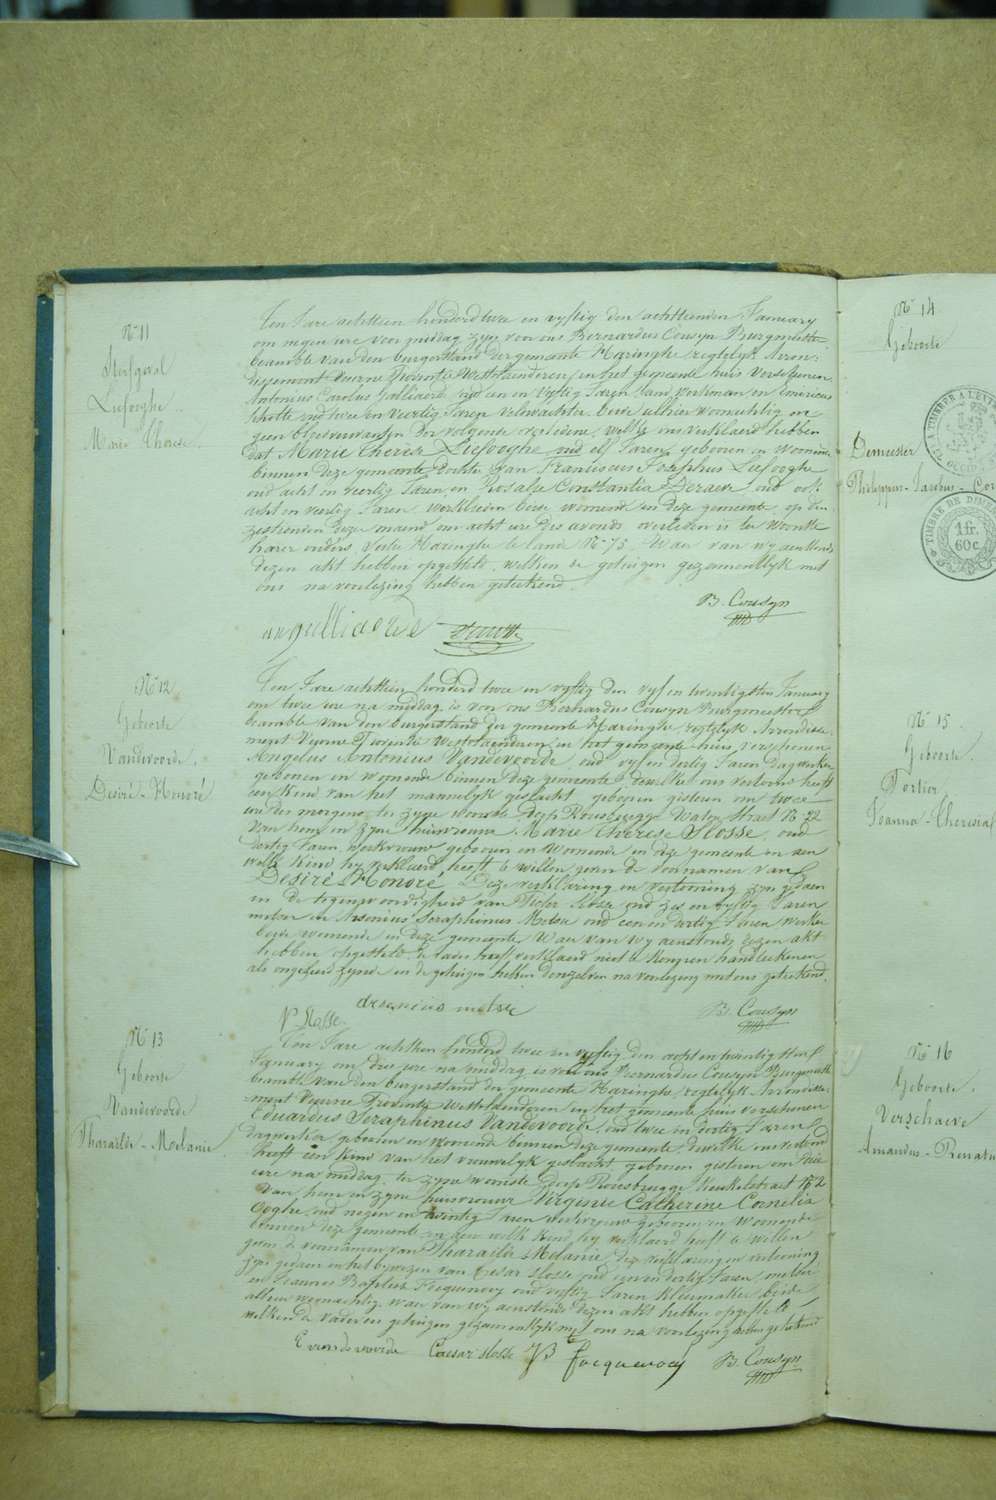 N° 11
Sterfgeval
Liefooghe
Marie Therese
Ten Jare achttien honderd twee en vyftig den achttienden January
om negen ure voor middag zyn voor ons Bernardus Cousyn Burgemeester
beambte van den burgerstand der gemeente Haringhe regtelyk Arron-
dissement Veurne Provintie Westvlaenderen in het gemeente huis verschenen
Antonius Carolus oud een en vyftig Jaren Landwerkman en Americus
oud twee en veertig Jaren veldwachter beide alhier woonachtig en
geen bloedverwanten der volgende overledene, welke ons verklaerd hebben
dat Marie Therese Liefooghe oud elf Jaren, geboren en woonende
binnen deze gemeente dochter van Franciscus Josephus Liefooghe
oud acht en veertig Jaren, en Rosalie Constantia Deraeve oud ook
acht en veertig Jaren werklieden beide woonende in deze gemeente, op den
zestienden dezer maend om acht ure des avonds overleden is ter woonste
harer ouders Haringhe te lande N° 75. Waer van wy aenstonds
dezen akt hebben opgesteld, welken de getuigen gezamentlyk met
ons na voorlezing hebben geteekend.
B. Cousyn
N° 12
Geboorte
Vandevoorde
Desiré-Honoré
Ten Jare achttien honderd twee en vyftig den vyf en twintigsten January
om twee ure na middag is voor ons Bernardus Cousyn Burgemeester
beambte van den burgerstand der gemeente Haringhe regtelyk Arrondisse-
ment Veurne Provintie Westvlaenderen in het gemeente huis verschenen
Angelus Antonius Vandevoorde oud vyf en dertig Jaren dagwerker
geboren en woonende binnen deze gemeente dewelke ons vertoond heeft
een kind van het mannelyk geslacht geboren gisteren om twee
ure des morgens ter zyner woonste dorp Rousbrugge Water straet N° 22
van hem en zyne huisvrouw Marie Therese Slosse oud
dertig Jaren werkvrouw geboren en woonende in deze gemeente en aen
welk kind hy verklaerd heeft te willen geven de voornamen van
Desiré-Honoré. Deze verklaring en vertooning zyn gedaen
in de tegenwoordigheid van Pieter Slosse oud zes en vyftig Jaren
metser en Arsenius Seraphinus Metsu oud een en dertig Jaren werker
beide woonende in deze gemeente Waer van wy aenstonds dezen akt
hebben opgesteld, de vader heeft verklaerd niet te konnen handteekenen
als ongeleerd zynde en de getuigen hebben denzelven na voorlezing met ons geteekend.
P Slosse
arsenius metsu
B. Cousyn
N° 13
Geboorte
Vandevoorde
Tharailde-Melanie
Ten Jare achttien honderd twee en vyftig den acht en twintigsten
January om drie ure na middag is voor ons Bernardus Cousyn Burgemeester
beambte van den burgerstand der gemeente Haringhe regtelyk Arrondisse-
ment Veurne Provintie Westvlaenderen in het gemeente huis verschenen
Eduardus Seraphinus Vandevoorde, oud twee en dertig Jaren
dagwerker geboren en woonende binnen deze gemeente, dewelke ons vertoond
heeft een kind van het vrouwelyk geslacht geboren gisteren om drie
ure na middag, ter zyner woonste dorp Rousbrugge straet N° 2
van hem en zyne huisvrouw Virginie Catherine Cornelia
Ooghe oud negen en twintig Jaren werkvrouw geboren en woonende
binnen deze gemeente en aen welk kind hy verklaerd heeft te willen
geven de voornamen van Tharailde-Melanie, deze verklaring en vertooning
zyn gedaen in het bywezen van Cesar Slosse oud een en dertig Jaren, metser
en Joannes Baptiste Focquenoey oud vyftig Jaren kleermaker, beide
alhier woonachtig, waer van wy aenstonds dezen akt hebben opgesteld
welken de vader en getuigen gezamentlyk met ons na voorlezing hebben geteekend
E vandevoorde
Caesar slosse
JB focquenoey
B. Cousyn
N° 14
Geboorte
Demeester
Philippus-Jacobus-Cor
TIMBRE DE DIMEN
1 fr.
60 c.
N° 15
Geboorte.
Portier
Joanna-Theresia
N° 16
Geboorte.
Verschaeve
Amandus-Renatus